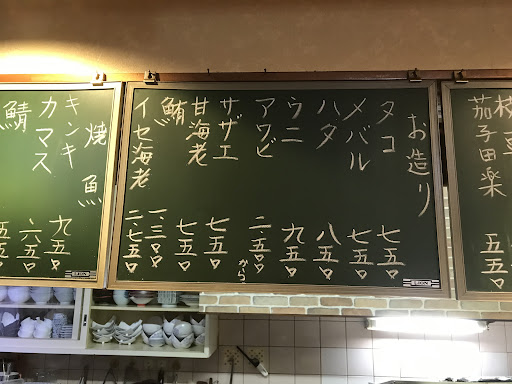 茄子田楽 五五〇
お造り
タコ 七五〇
メバル 七五〇
ハタ 八五〇
ウニ 九五〇
アワビ 二.五〇〇から
サザエ 七五〇
甘海老 七五〇
鮪 一.三〇〇
イセ海老 二.七五〇
焼魚
キンキ 九五〇
カマス 六五〇
鯖 五五〇